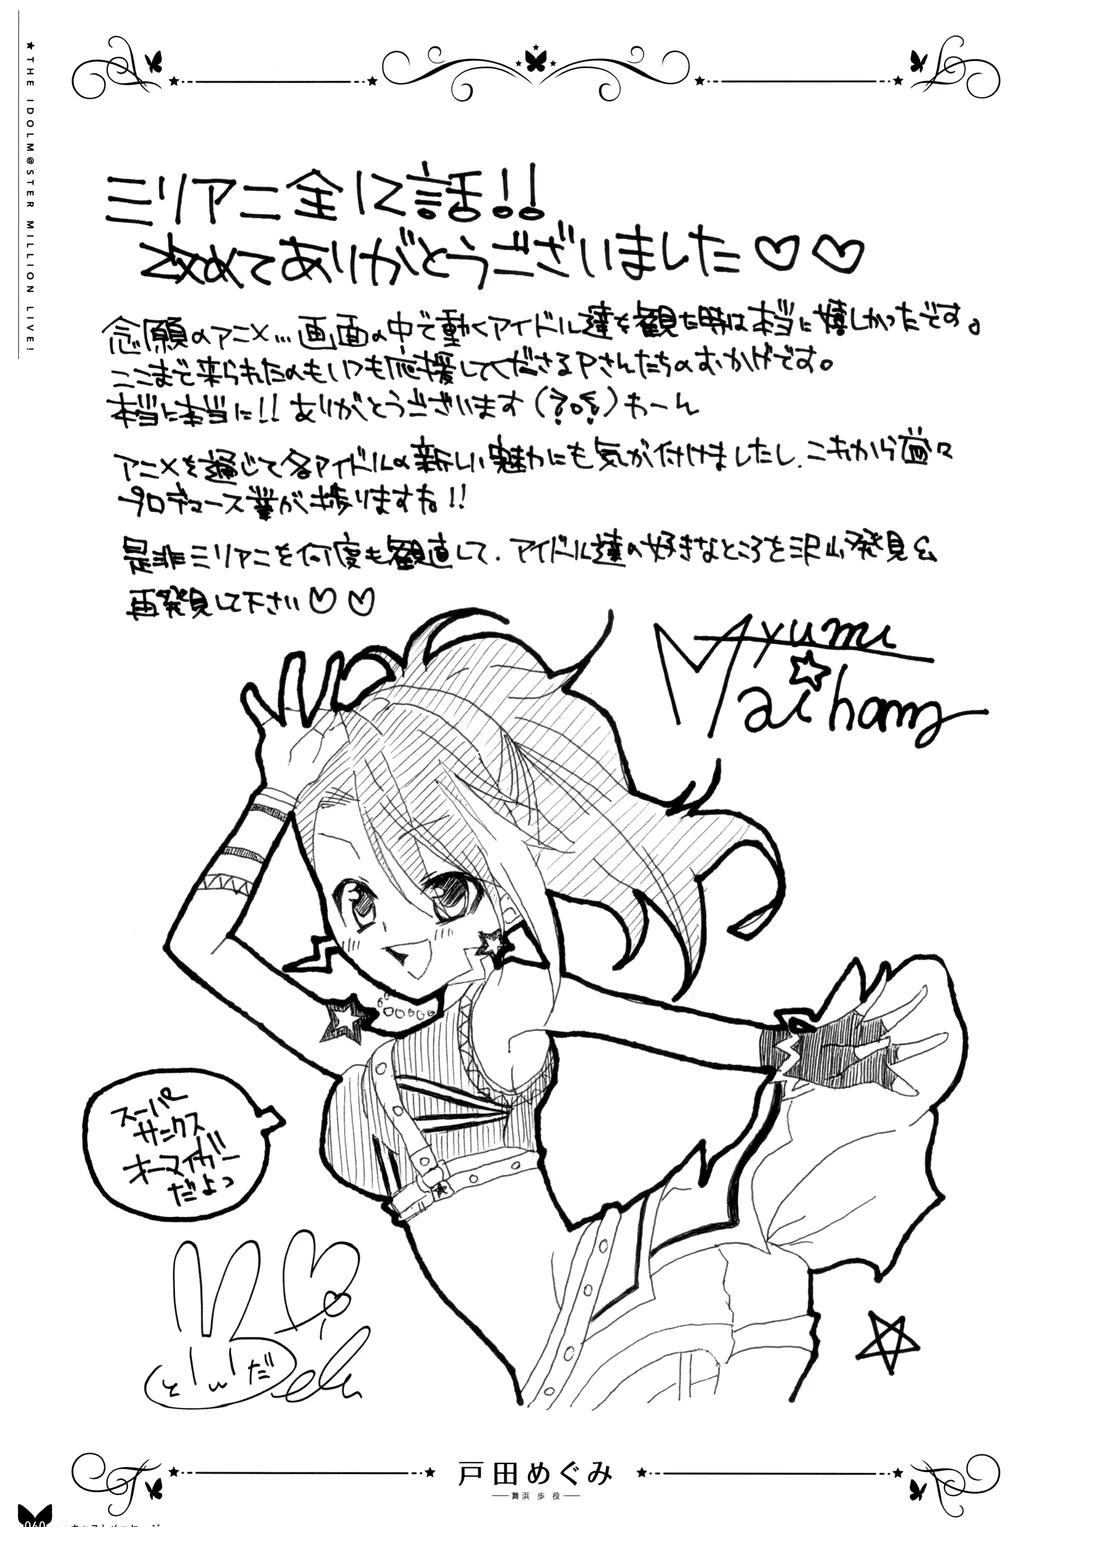 ★THE IDOLM@STER MILLION LIVE!
ミリアニ全12話!!
改めてありがとうございました♡♡
念願のアニメ…画面の中で動くアイドル達を観た時は本当に嬉しかったです。
ここまで来られたのもいつも応援してくださるPさんたちのおかげです。
本当に本当に!! ありがとうございます わーん
アニメを通じて各アイドルの新しい魅力にも気が付けましたし、これから益々
プロデュース業が捗りますね!!
是非ミリアニを何度も観直して、アイドル達の好きなところを沢山発見&
再発見して下さい♡♡
Ayumi
Maihama
スーパー
サンクス
オーマイガー
だよっ
とだ
戸田めぐみ
舞浜 歩 役
060